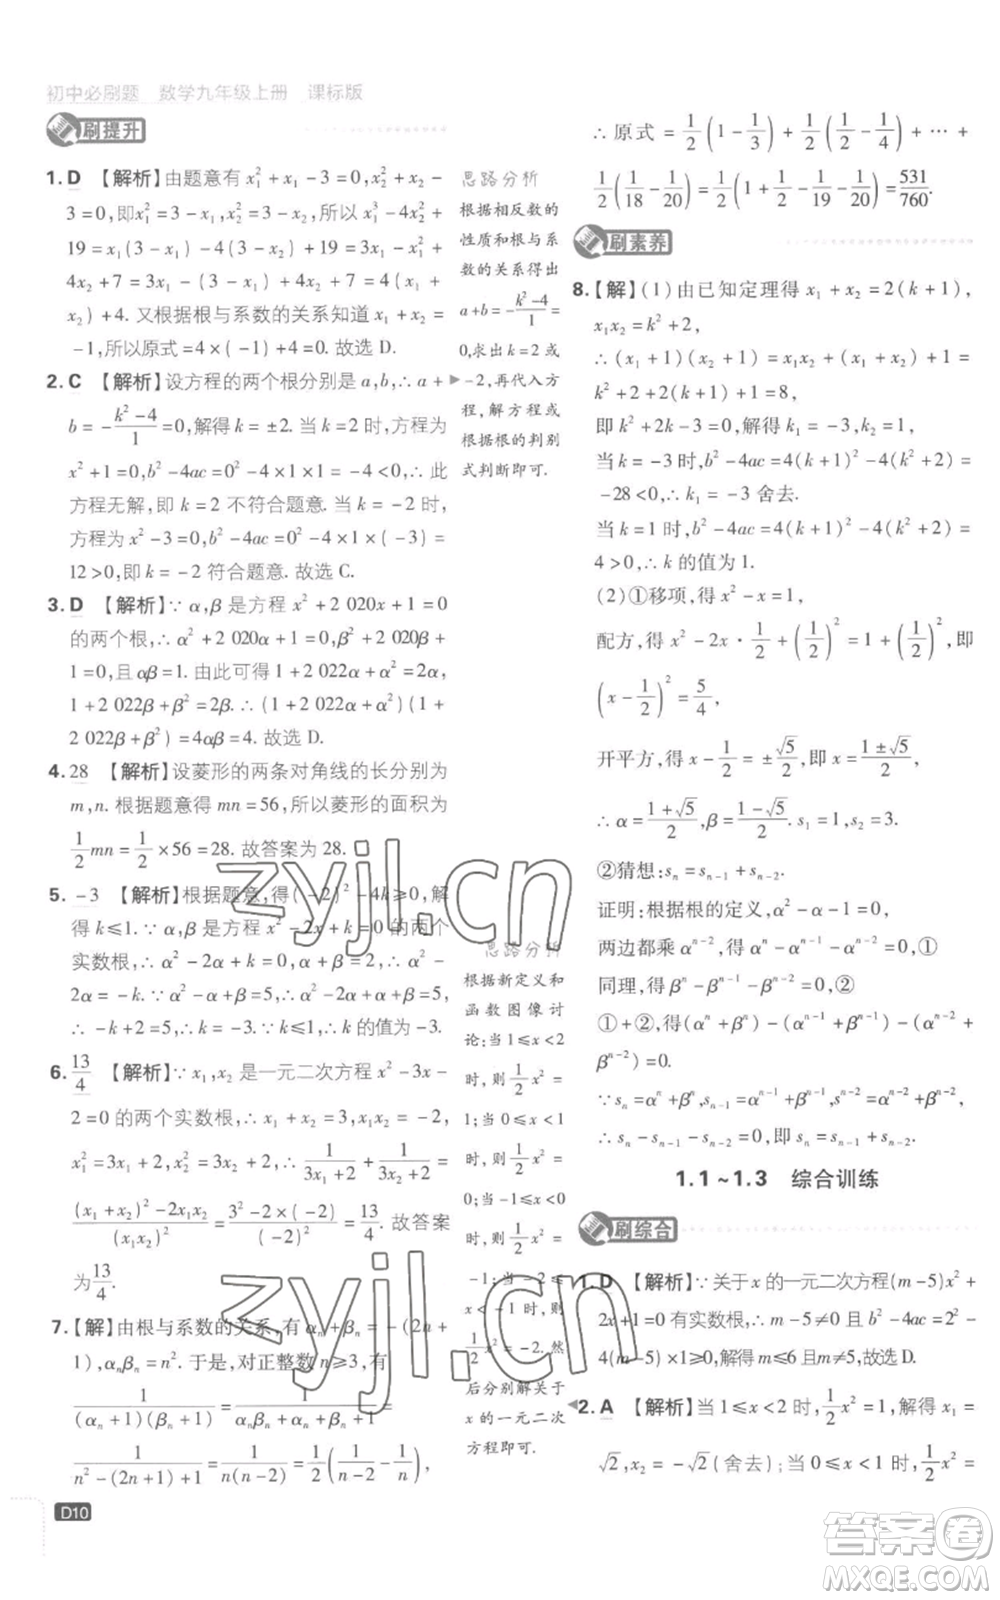 初中必刷题 数学九年级上册 课标版
刷提升
1. D 【解析】由题意有 x₁²+x₁-3=0,x₂²+x₂-
3=0,即x₁²=3-x₁,x₂²=3-x₂,所以 x₁³-4x₂²+
19=x₁(3-x₁)-4(3-x₂)+19=3x₁-
x₂)+4. 又根据根与系数的关系知道 x₁+x₂=
-1,所以原式=4×(-1)+4=0. 故选 D.
2. C 【解析】设方程的两个根分别是 a,b,∴ a+
b=-(k²-4)/1=0,解得 k=±2. 当 k=2 时,方程为
x²+1=0,b²-4ac=0²-4×1×1=-4<0,∴ 此
方程无解,即 k=2 不符合题意. 当 k=-2 时,
方程为 x²-3=0,b²-4ac=0²-4×1×(-3)=
12>0,即 k=-2 符合题意. 故选 C.
3. D 【解析】∵ α,β 是方程 x²+2 020x+1=0
的两个根,∴ α²+2 020α+1=0,β²+2 020β+
1=0,且 αβ=1. 由此可得 1+2 022α+α²=2α,
1+2 022β+β²=2β. ∴ (1+2 022α+α²)(1+
2 022β+β²)=4αβ=4. 故选 D.
4. 28 【解析】设菱形的两条对角线的长分别为
m,n. 根据题意得 mn=56,所以菱形的面积为
1/2 mn=1/2×56=28. 故答案为 28.
5. -3 【解析】根据题意,得(-2)²-4k≥0,解
得 k≤1. ∵ α,β 是方程 x²-2x+k=0 的两个
实数根,∴ α²-2α+k=0,α+β=2,∴ α²-
2α=-k. ∵ α²-α+β=5,∴ α²-2α+2=5,
∴ -k+2=5,∴ k=-3. ∵ k≤1,∴ k 的值为-3.
6. 13/4 【解析】∵ x₁,x₂ 是一元二次方程 x²-3x-
2=0 的两个实数根,∴ x₁+x₂=3,x₁x₂=-2,
x₁²=3x₁+2,x₂²=3x₂+2,∴ 1/(3x₁+2)+1/(3x₂+2)=
((x₁+x₂)²-2x₁x₂)/(x₁x₂)²=(3²-2×(-2))/(-2)²=13/4. 故答案
为 13/4.
7. 【解】由根与系数的关系,有 αₙ+βₙ=-(2n+
1),αₙβₙ=n². 于是,对正整数 n≥3,有
1/((αₙ+1)(βₙ+1))=1/(αₙβₙ+αₙ+βₙ+1)=
1/(n²-(2n+1)+1)=1/(n(n-2))=1/2(1/(n-2)-1/n),
D10
思路分析
根据相反数的
性质和根与系
数的关系得出
a+b=-(k²-4)/1=
0,求出 k=2 或
-2,再代入方
程,解方程或
根据根的判别
式判断即可.
思路分析
根据新定义和
函数图像讨
论:当1≤x<2
时,则1/2x²=
1;当0≤x<1
时,则1/2x²=
0;当-1≤x<0
时,则1/2x²=
-1;当-2≤
x<-1 时,则
1/2x²=-2. 然
后分别解关于
x 的一元二次
方程即可.
∴ 原式=1/2(1-1/3)+1/2(1/2-1/4)+…+
1/2(1/18-1/20)=1/2(1+1/2-1/19-1/20)=531/760.
刷素养
8. 【解】(1)由已知定理得 x₁+x₂=2(k+1),
x₁x₂=k²+2,
∴ (x₁+1)(x₂+1)=x₁x₂+(x₁+x₂)+1=
k²+2+2(k+1)+1=8,
即 k²+2k-3=0,解得 k₁=-3,k₂=1.
当 k=-3 时,b²-4ac=4(k+1)²-4(k²+2)=
-28<0,∴ k₁=-3 舍去.
当 k=1 时,b²-4ac=4(k+1)²-4(k²+2)=
4>0,∴ k 的值为 1.
(2)①移项,得 x²-x=1,
配方,得 x²-2x·1/2+(1/2)²=1+(1/2)²,即
(x-1/2)²=5/4,
开平方,得 x-1/2=±√5/2,即 x=(1±√5)/2,
∴ α=(1+√5)/2,β=(1-√5)/2. s₁=1,s₂=3.
②猜想:sₙ=sₙ₋₁+sₙ₋₂.
证明:根据根的定义,α²-α-1=0,
两边都乘 αⁿ⁻²,得 αⁿ-αⁿ⁻¹-αⁿ⁻²=0,①
同理,得 βⁿ-βⁿ⁻¹-βⁿ⁻²=0,②
①+②,得(αⁿ+βⁿ)-(αⁿ⁻¹+βⁿ⁻¹)-(αⁿ⁻²+
βⁿ⁻²)=0.
∵ sₙ=αⁿ+βⁿ,sₙ₋₁=αⁿ⁻¹+βⁿ⁻¹,sₙ₋₂=αⁿ⁻²+βⁿ⁻²,
∴ sₙ-sₙ₋₁-sₙ₋₂=0,即 sₙ=sₙ₋₁+sₙ₋₂.
1.1~1.3 综合训练
刷综合
1. D 【解析】∵ 关于 x 的一元二次方程(m-5)x²+
2x+1=0 有实数根,∴ m-5≠0 且 b²-4ac=2²-
4(m-5)×1≥0,解得 m≤6 且 m≠5,故选 D.
2. A 【解析】当 1≤x<2 时,1/2x²=1,解得 x₁=
√2,x₂=-√2(舍去);当 0≤x<1 时,1/2x²=
zyjl.cn
zyjl.cn
答案圈
MXQE.COM